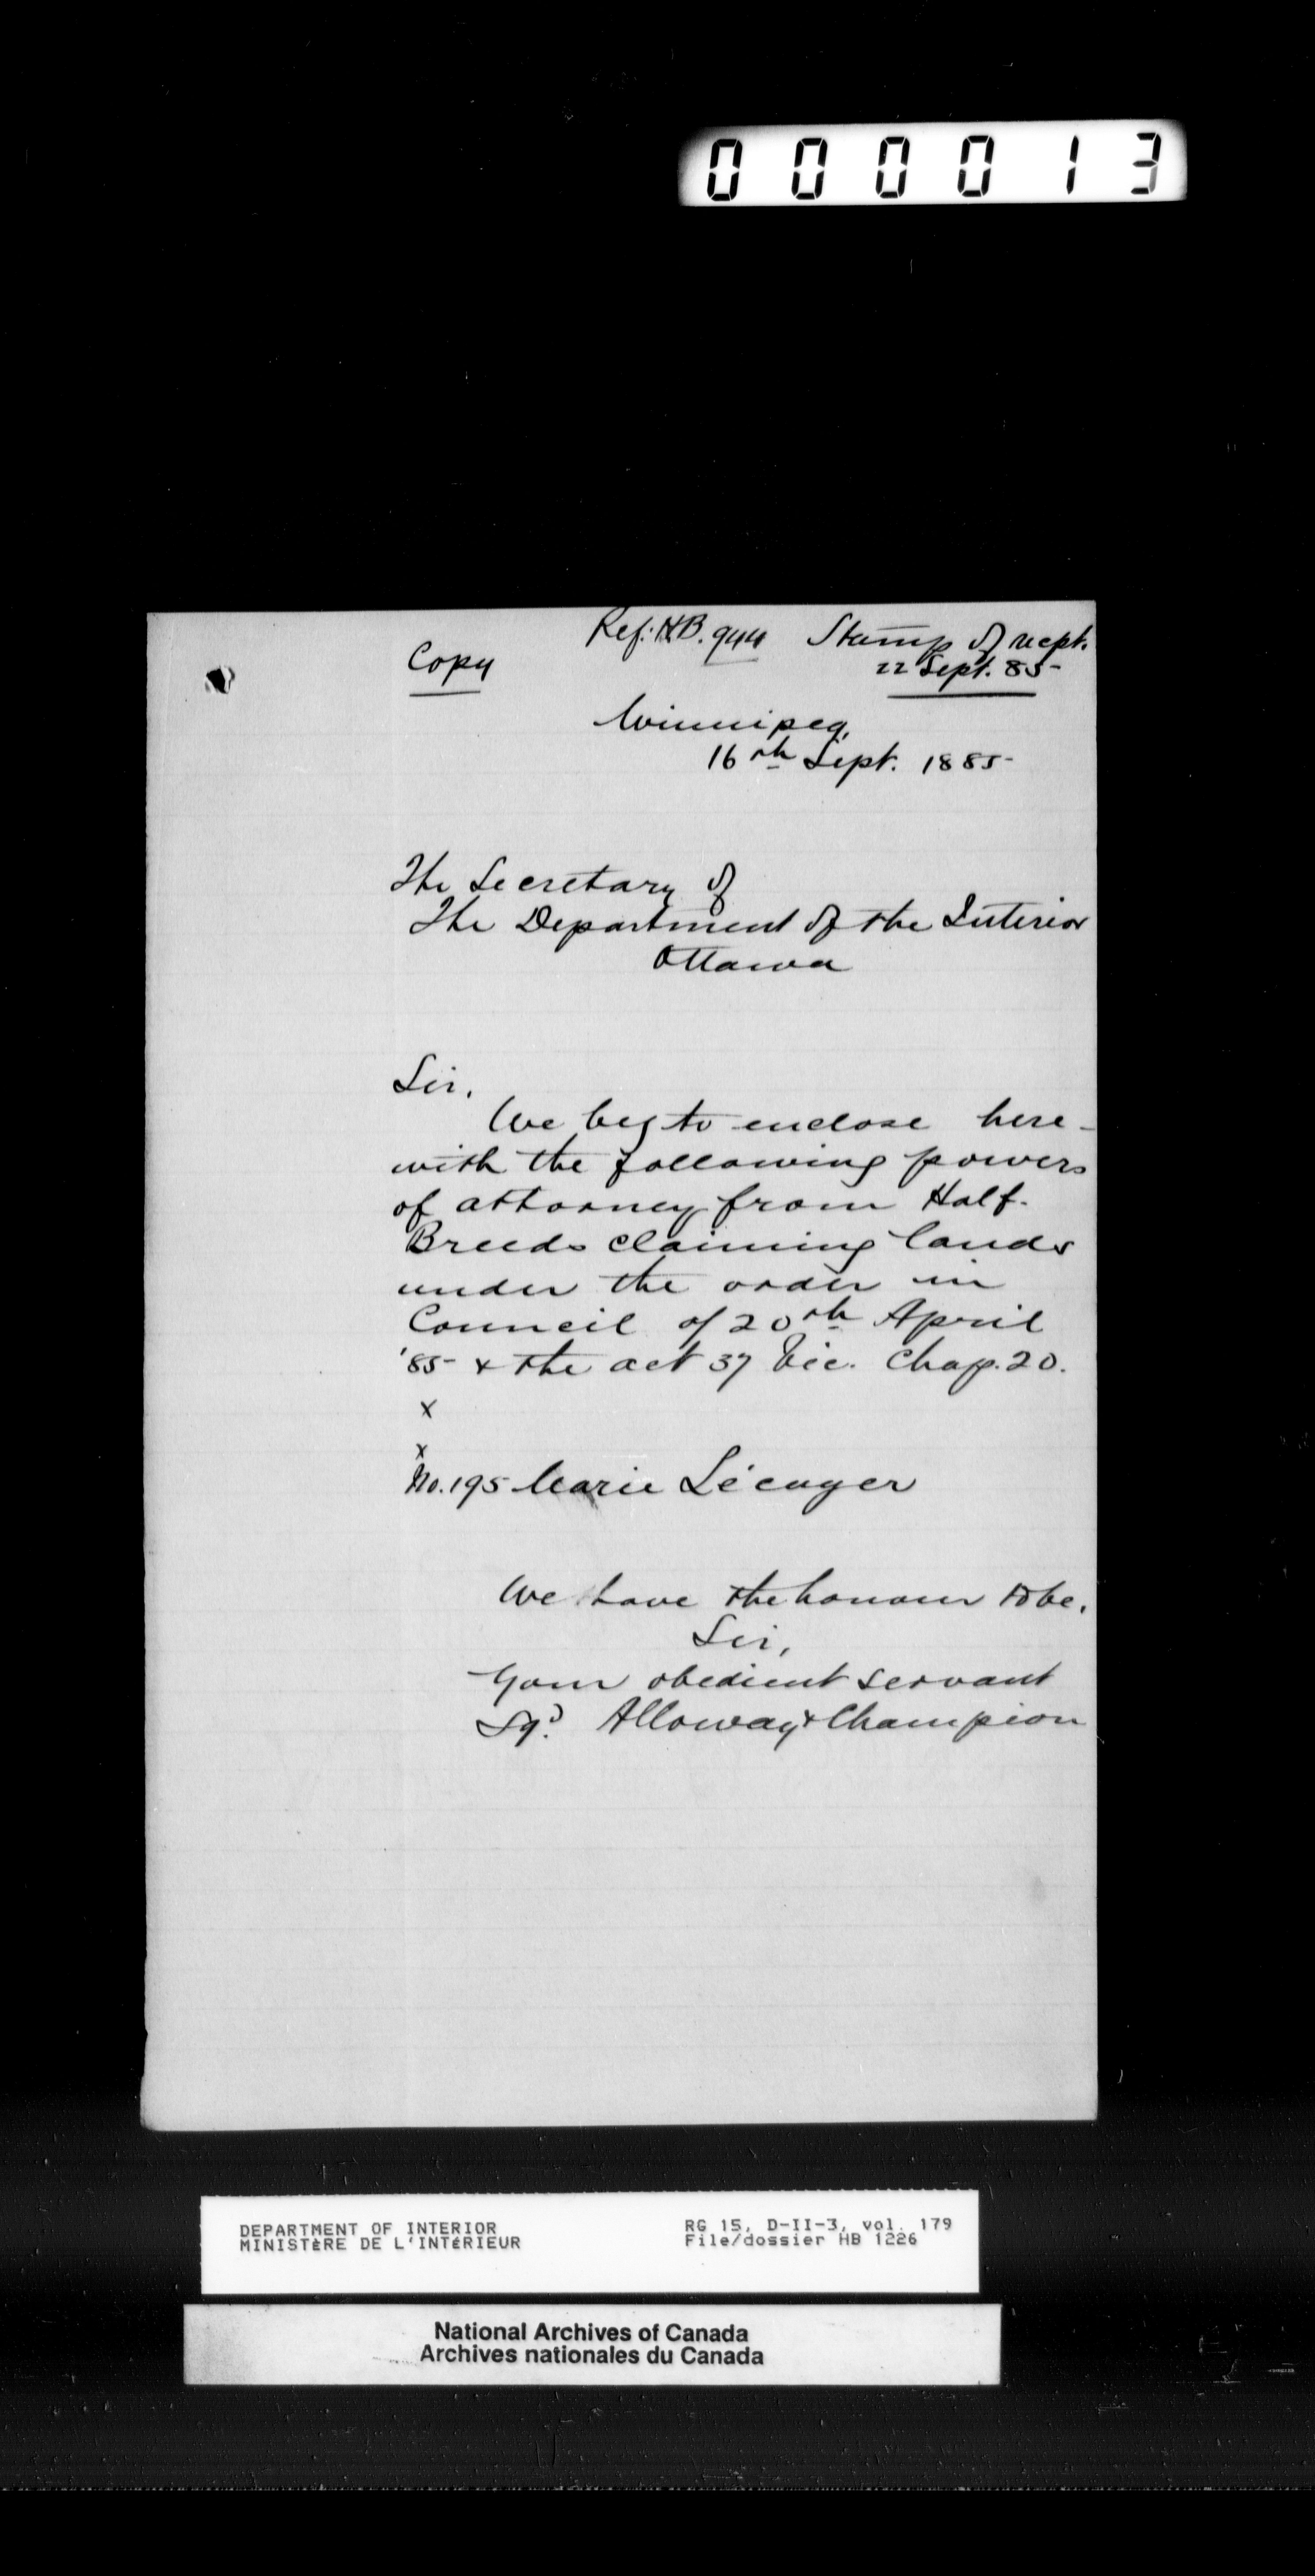 000013
Ref: HB. 944 Stamp of recpt.
Copy 22 Sept. 85
Winnipeg,
16th Sept. 1885
The Secretary of
The Department of the Interior
Ottawa
Sir,
We beg to enclose here-
with the following powers
of attorney from Half-
Breeds claiming lands
under the order in
Council of 20th April
'85 & the act 37 Vic. Chap. 20.
x
x
No. 195 Marie Lécuyer
We have the honour to be,
Sir,
Your obedient servant
Sgd. Alloway & Champion
DEPARTMENT OF INTERIOR RG 15, D-II-3, vol. 179
MINISTÈRE DE L'INTÉRIEUR File/dossier HB 1226
National Archives of Canada
Archives nationales du Canada